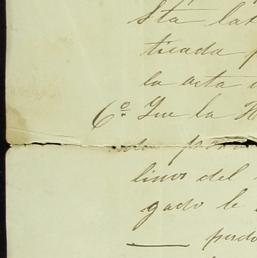 sta lat
ticada p
la acta
6º Que la H
do para
linos del
gado le
perdo